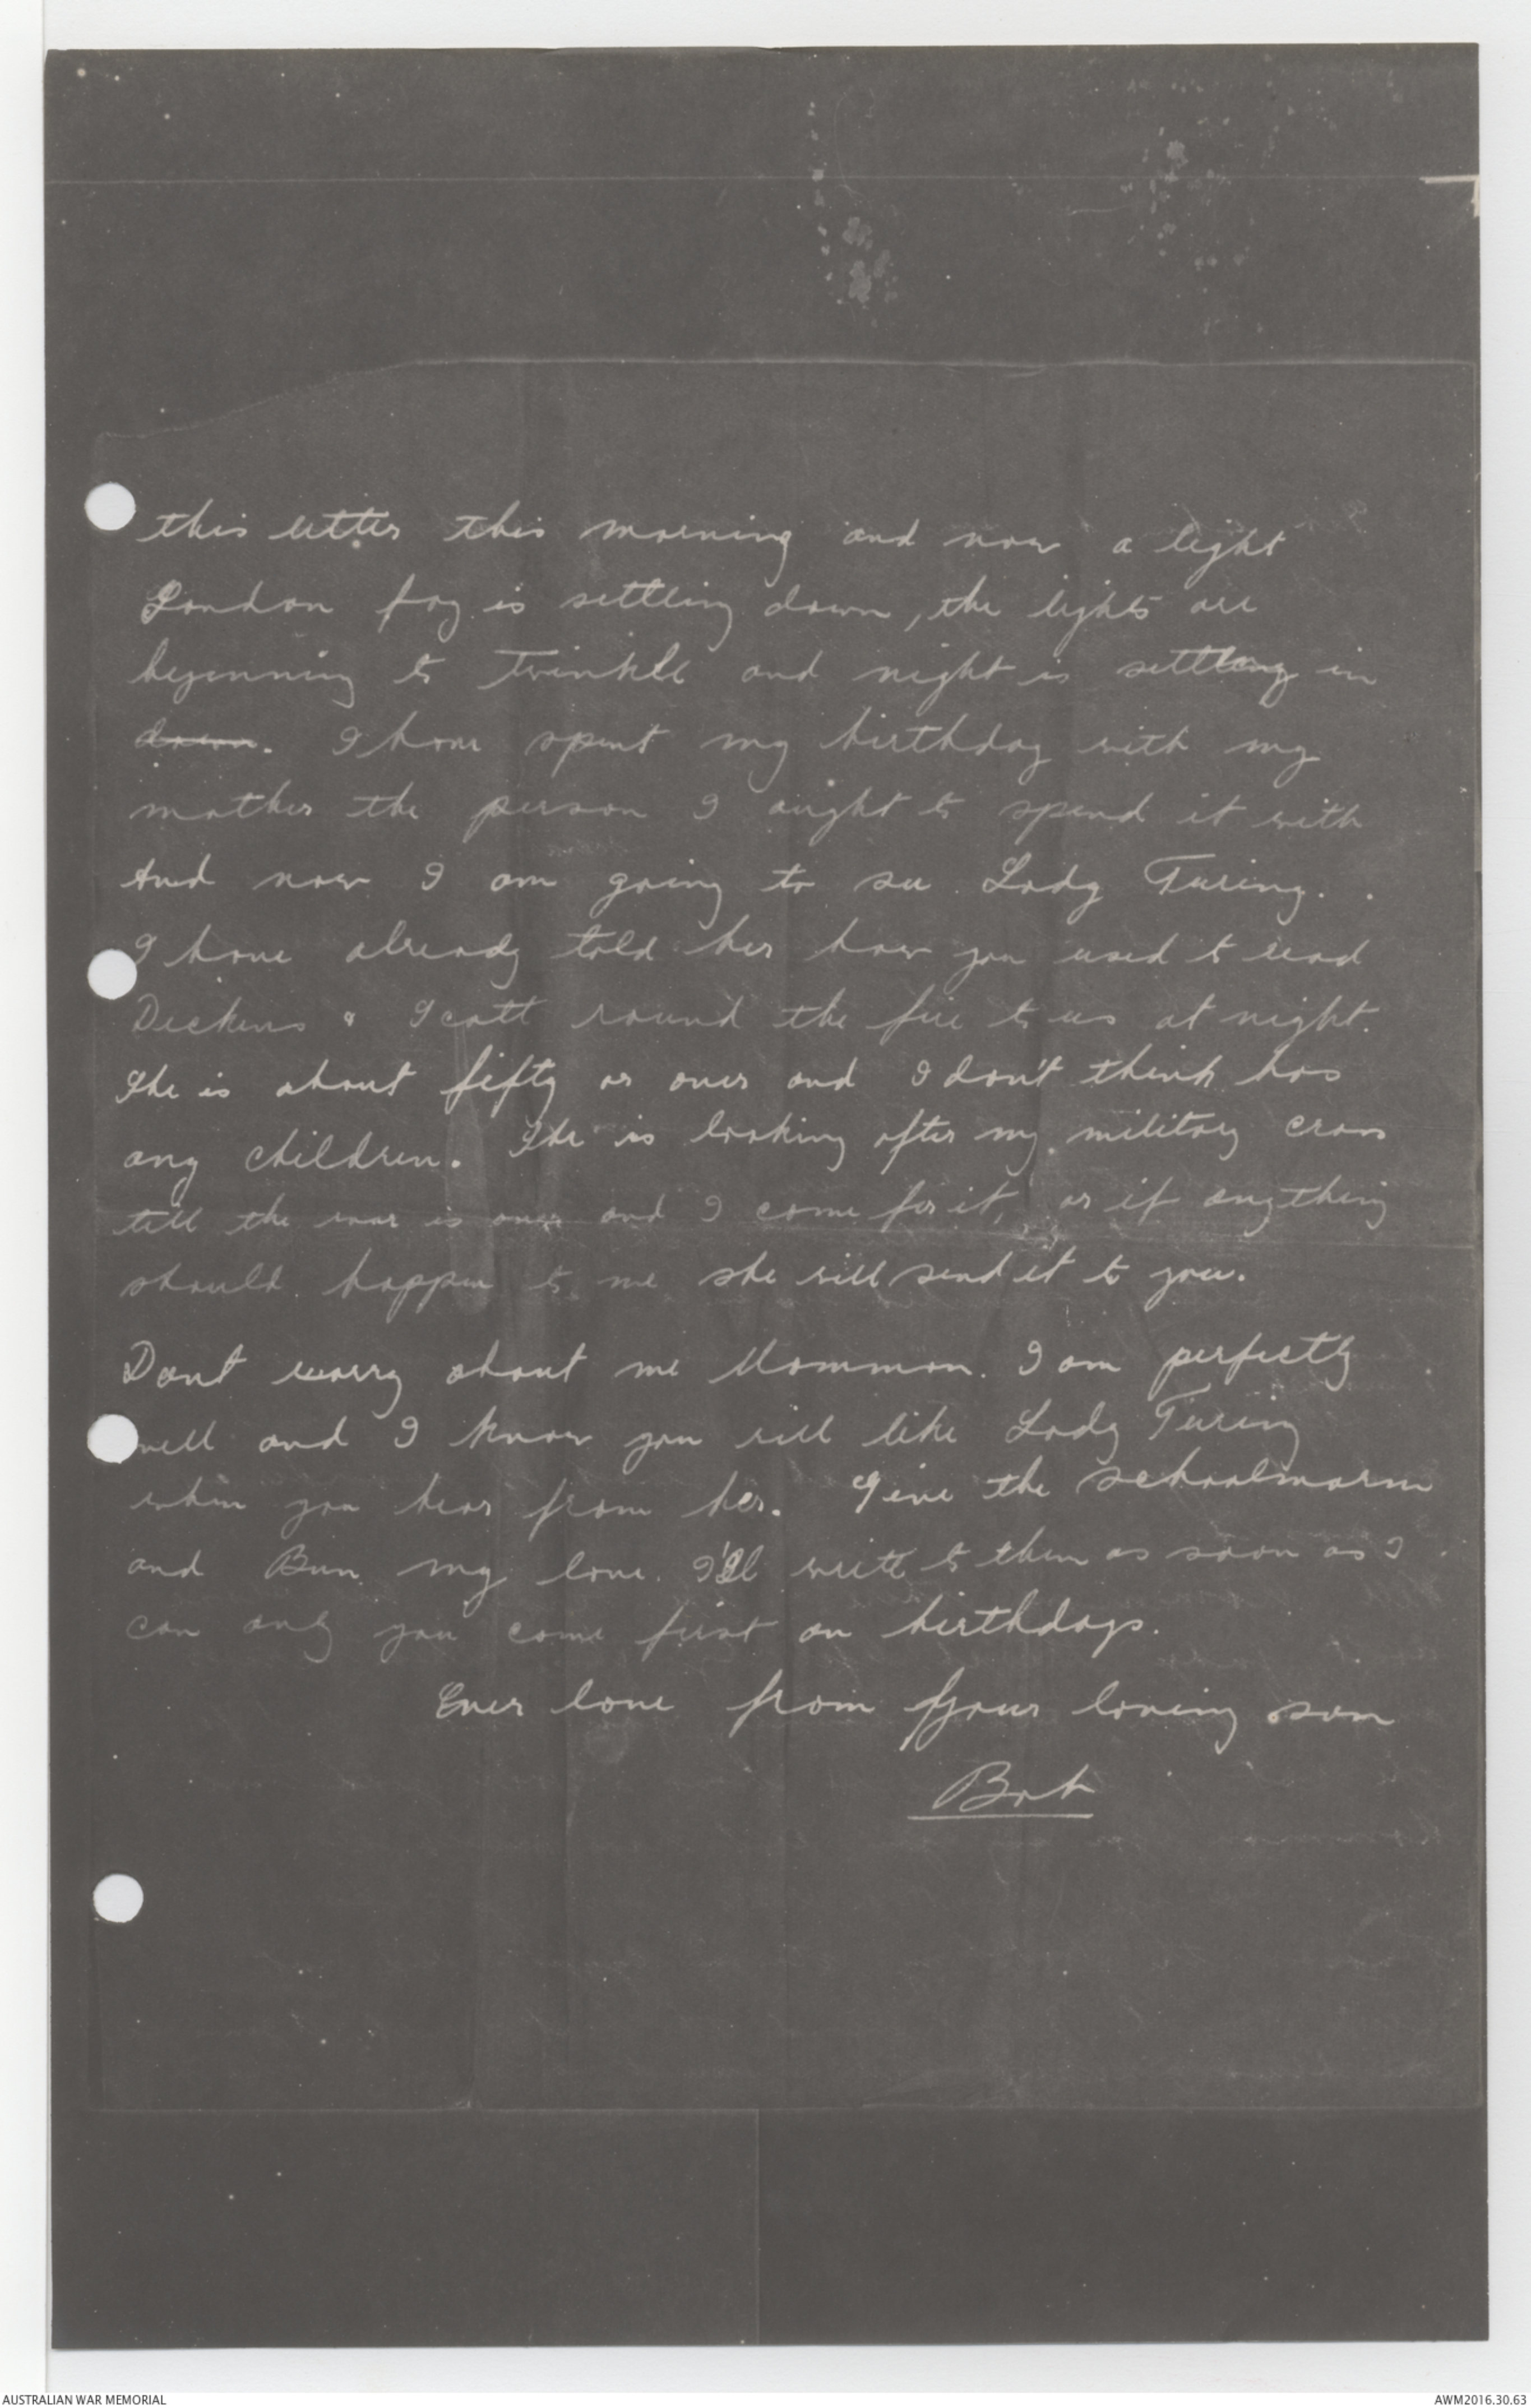 this letter this morning and now a light
London fog is settling down, the lights are
beginning to twinkle and night is settling in
down. I have spent my birthday with my
mother the person I ought to spend it with
And now I am going to see Lady Turing.
I have already told her how you used to read
Dickens & Scott round the fire to us at night.
She is about fifty or over and I don't think has
any children. She is looking after my military cross
till the war is over and I come for it, or if anything
should happen to me she will send it to you.
Dont worry about me Mamman. I am perfectly
well and I know you will like Lady Turing
when you hear from her. Give the schoolmarm
and Bun my love. I'll write to them as soon as I
can only you come first on birthdays.
Ever love from your loving son
Bert
AUSTRALIAN WAR MEMORIAL
AWM2016.30.63